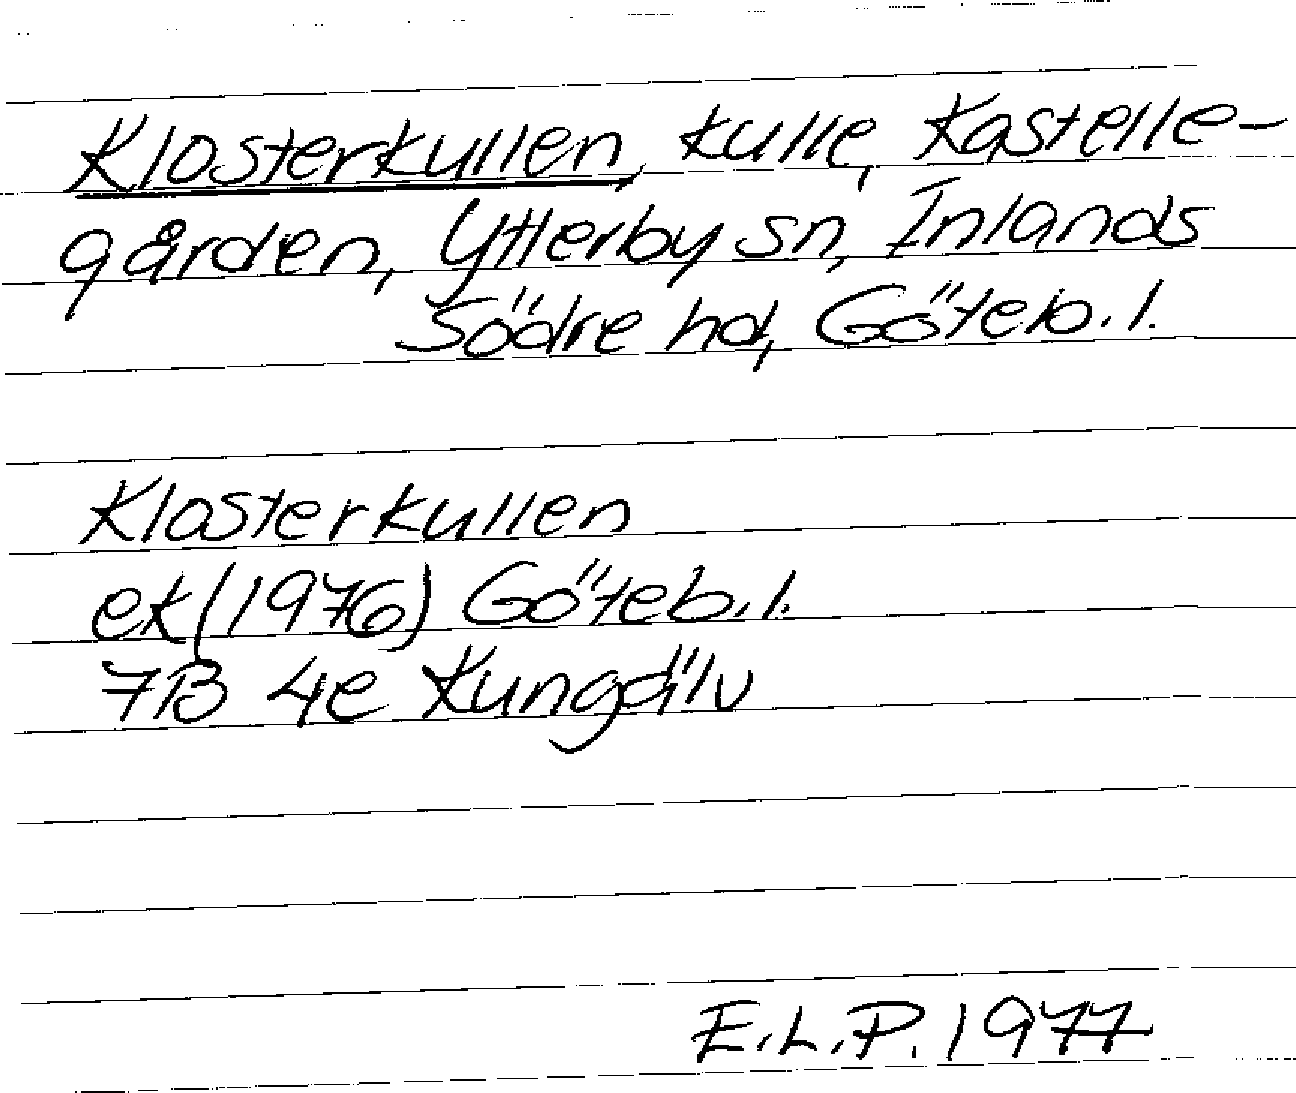 Klosterkullen, kulle, Kastelle-
gården, Ytterby sn, Inlands
Södre hd, Göteb. l.
Klosterkullen
ek (1976) Göteb. l.
7B 4e Kungälv
E.L.P. 1977